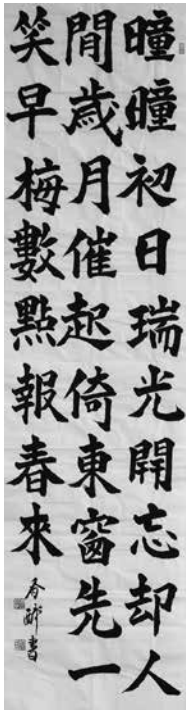 曈曈初日瑞光開忘却人
間歲月催起倚東窗先一
笑早梅數點報春來
香酔書